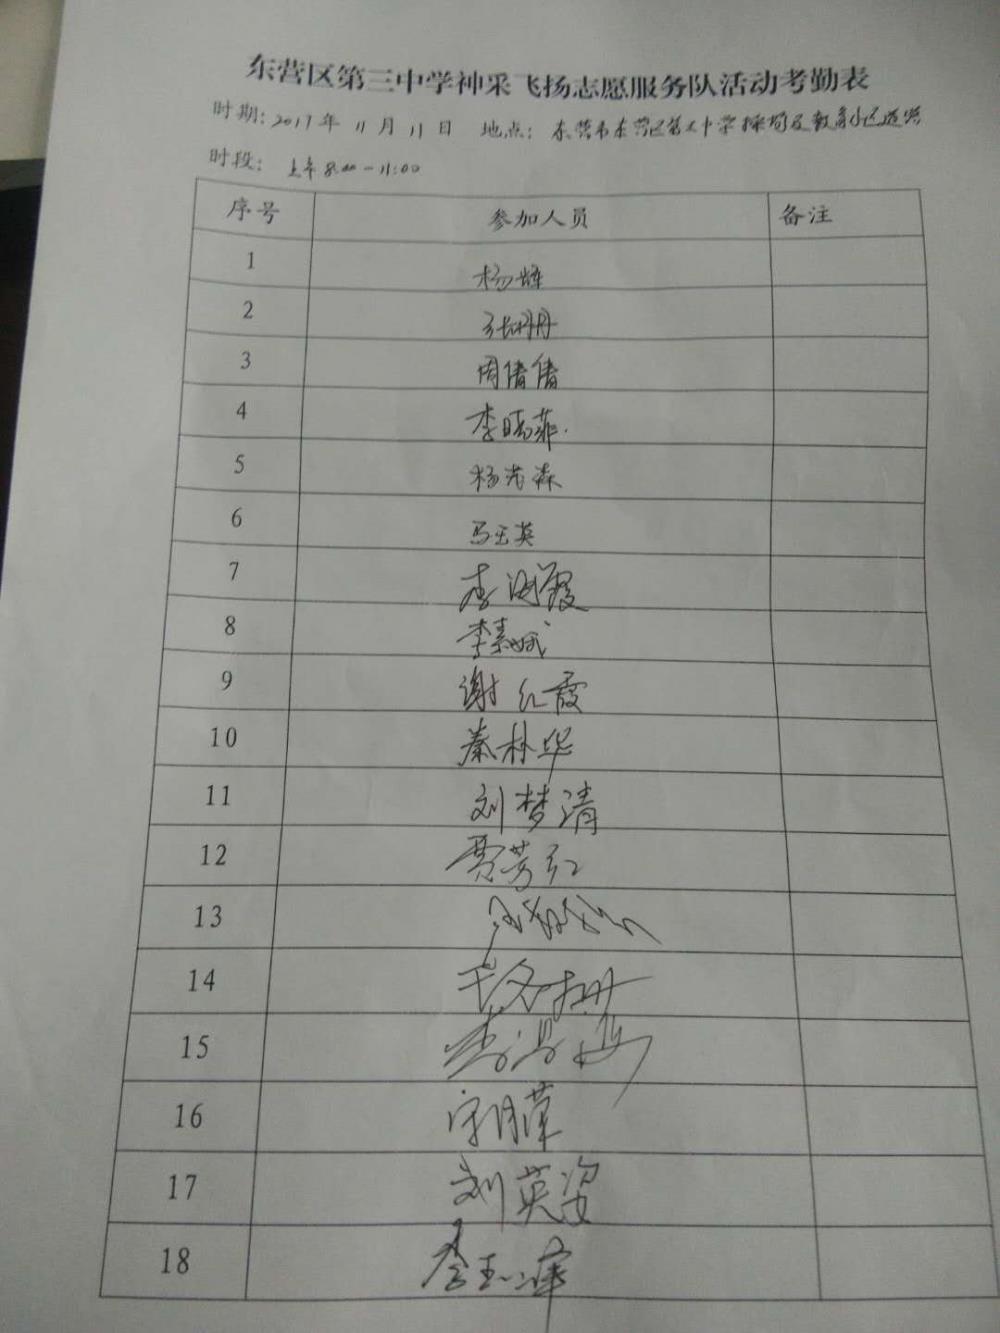 东营区第三中学神采飞扬志愿服务队活动考勤表
时期：2017年 11月 11日 地点：东营市东营区第三中学操场及教育小区道路
时段：上午8:00-11:00
序号 参加人员 备注
1 杨辉
2 张丹丹
3 周倩倩
4 李晓菲
5 杨光森
6 马玉英
7 李海霞
8 李素娥
9 谢红霞
10 秦林华
11 刘梦清
12 贾芳红
13
14
15
16
17 刘英姿
18